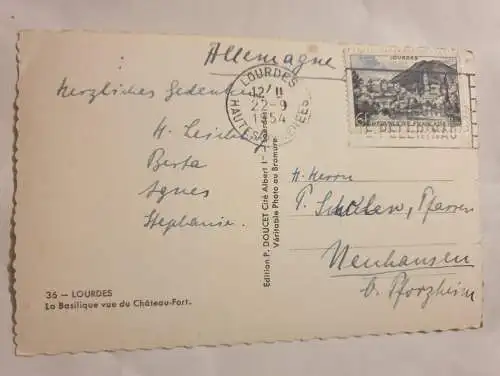 Allemagne
LOURDES
12 H
22-9
1954
HAUTES PYRENEES
LOURDES
6F
REPUBLIQUE FRANÇAISE
PELERINAG
Herzliches Gedenken
H.
Berta
Agnes
Stephanie.
Edition P. DOUCET Cité Albert 1er
Véritable Photo au Bromure
H. Herrn
P. Pfarrer
Neuhausen
b. Pforzheim
36 — LOURDES
La Basilique vue du Château-Fort.